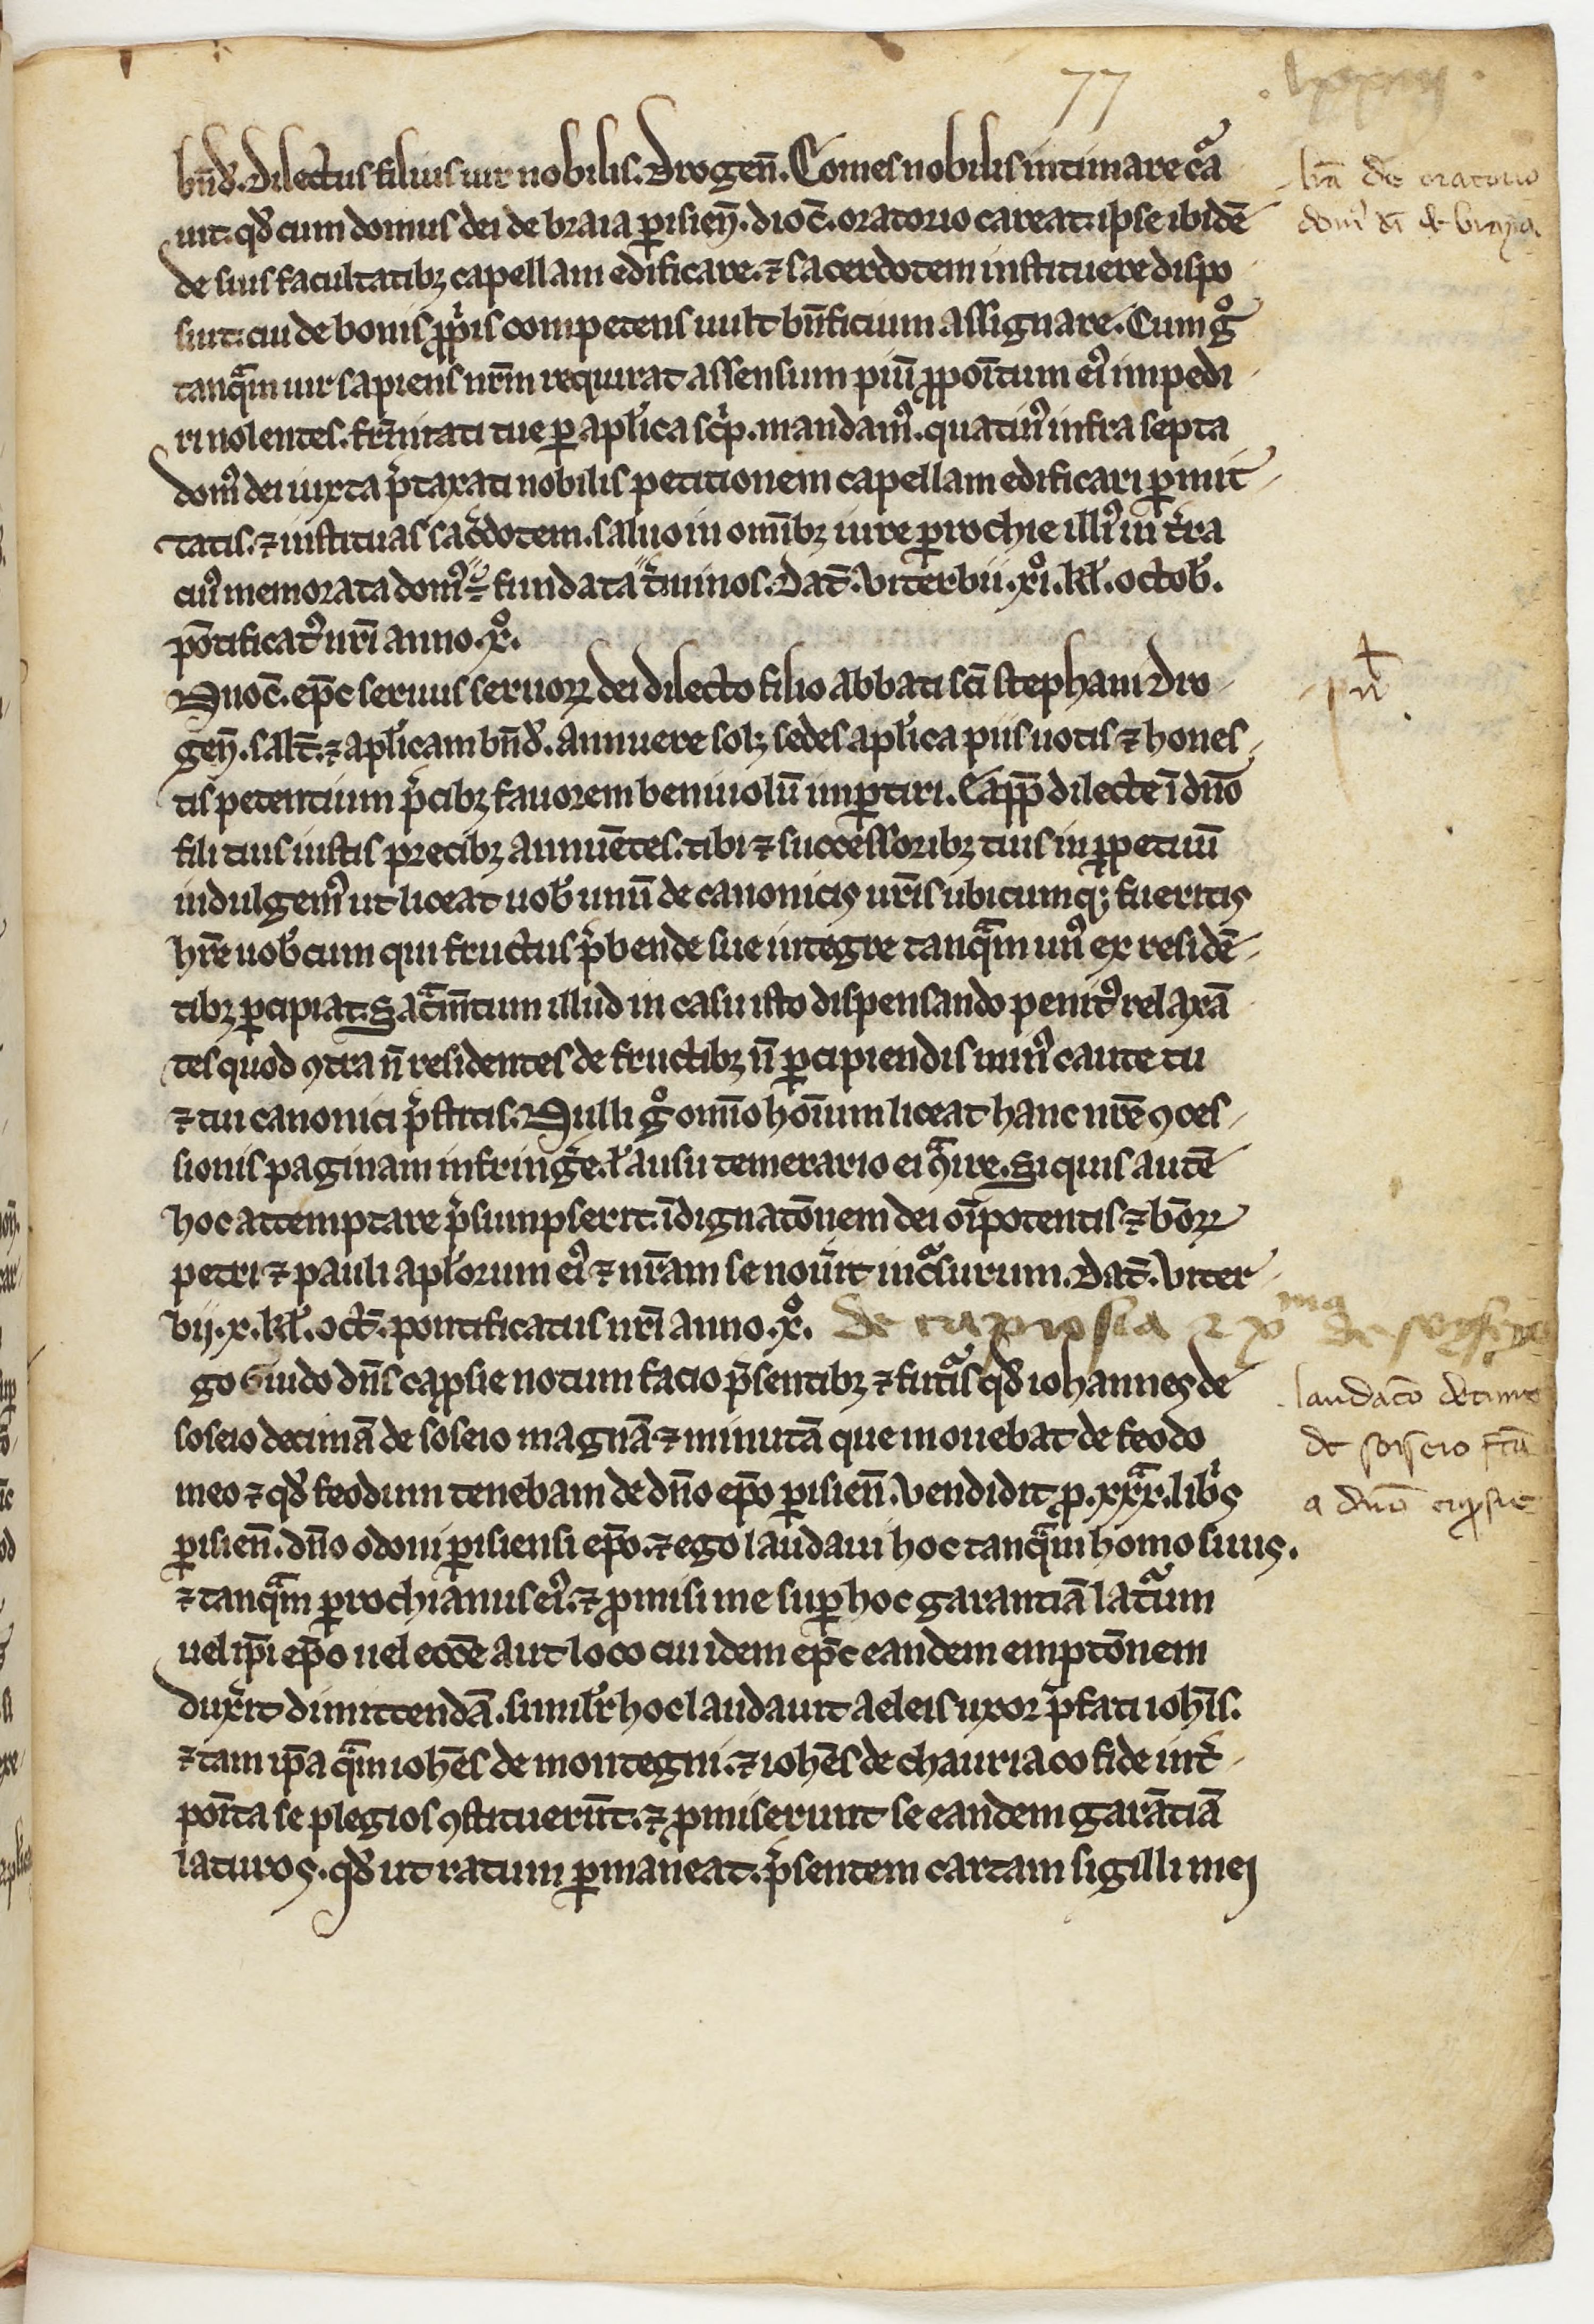 77
lxxvii
bn̄d. Dilectus filius uir nobilis. Drogen̄. Comes nobilis intimare cͣa
uit. qd̕ cum domus dei de braia ꝑisien̄. dioc̄. oratorio careat. ipse ibidē
de suis facultatibꝫ capellam edificare. ⁊ sacerdotem instituere dispo
suit. cui de bonis ꝓpͥis competens uult bn̄ficium assignare. Cum gͦ
tanqͣm uir sapiens nr̄m requirat assensum piū ꝓpoi̅tum eiꝰ impedi
ri nolentes. fr̄nitati tue ꝑ apl̕ica scͥp. mandamꝰ. quatinꝰ infra septa
domꝰ dei iuxta p̓taxati nobilis petitionem capellam edificari ꝑmit
tatis. ⁊ instituas sac̓dotem. saluo in omībꝫ iure ꝑrochie illiꝰ in t̓ra
cuiꝰ memorata domꝰ ÷ fundata t̓minos. Dat̄. Viterbii. xiͦ. kl̕. octob̕.
pōtificatꝰ nr̄i anno. xͦ.
nnoc̄. ep̄c seruus seruoꝝ dei dilecto filio abbati sc̄i stephani Dro
gen̄. salt̄. ⁊ apl̕icam bn̄d̕. annuere solꝫ sedes apl̕ica piis uotis ⁊ hones
tis petentium p̓cibꝫ fauorem beniuolū imꝑtiri. Eapp̄ dilecte ī dn̄o
fili tuis iustis precibꝫ annuētes. tibi ⁊ successoribꝫ tuis in ꝑpetuū
indulgemꝰ ut liceat uob̕ unū de canonicis ur̄is ubicumqꝫ fueritis
hr̄e uob̕cum qui fructus p̓bende sue integre tanqͣm unꝰ ex residē
tibꝫ ꝑcipiat. Sacͣmn̄tum illud in casu isto dispensando penitꝰ relaxā
tes quod ꝯtra n̄ residentes de fructibꝫ n̄ ꝑcipiendis minꝰ caute tu
⁊ tui canonici p̓stitis. Nulli gͦ omīo hoīum liceat hanc nr̄e ꝯces
sionis paginam infring̓e. ł ausu temerario ei ꝯͣire. Si quis autē
hoc attemptare p̓sumpserit. īdignatōnem dei oīpotentis ⁊ bōꝝ
petri ⁊ pauli apl̕orum eiꝰ ⁊ nr̄am se nou̓it incͣsurum. Dat̄. Viter
bii. x. kl̕. oct̄. pontificatus nr̄i anno. xͦ.
go Guido dn̄s caprosie notum facio p̄sentibꝫ ⁊ futͣis qd̕ iohannes de
soseio decimā de soseio magnā ⁊ minutā que mouebat de feodo
meo ⁊ qd̕ feodum tenebam de dn̄o ep̄o ꝑisien̄. Vendidit ꝓ. xxxͣ. libͥs
ꝑisien̄. dn̄o odoni ꝑisiensi ep̄o. ⁊ ego laudaui hoc tanqͣm homo suus.
⁊ tanqͣm ꝑrochianus eiꝰ. ⁊ ꝓmisi me suꝑ hoc garantiā latͣum
uel ip̄i ep̄o uel ecc̄e aut loco cui idem ep̄c eandem emptōnem
dux̓it dimittendā. simil̕r hoc laudauit aeleis uxor p̓fati ioh̄is.
⁊ tam ip̄a qͣm ioh̄es de montegni. ⁊ ioh̄es de chauriaco fide int̓
poi̅ta se plegios ꝯstituerūt. ⁊ ꝓmiserunt se eandem garātiā
laturos. qd̕ ut ratum ꝑmaneat. p̓sentem cartam sigilli mei
lr̄a de oratorio
domꝰ di̅ de braya
de caprosia
laudac̄o decime
de soiseio fc̄a
a dn̄o caprosie